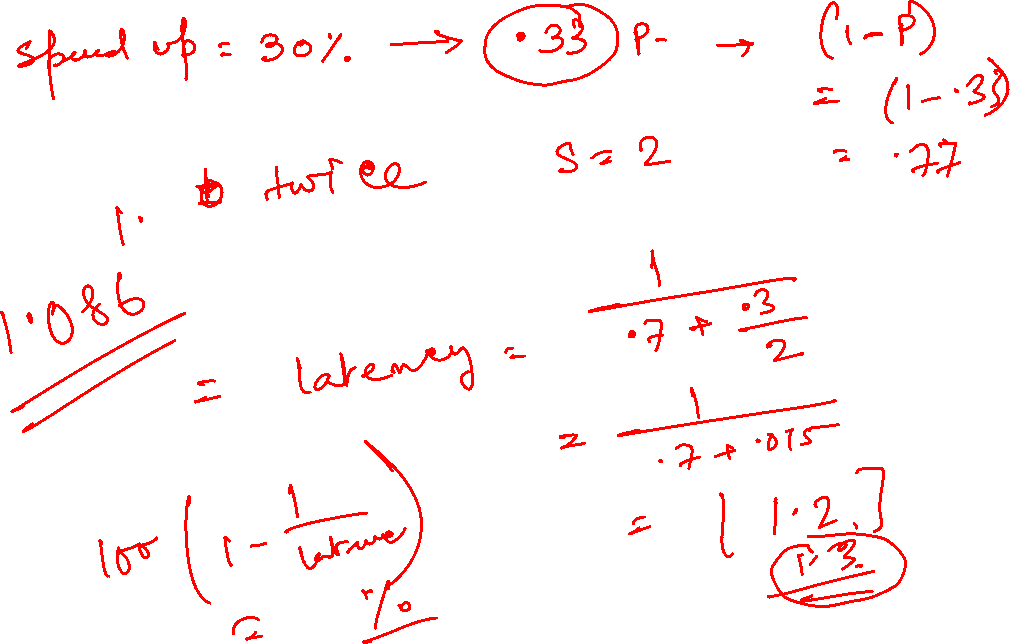 Speed up = 30% → .33 P- → (1-P)
= (1-.33)
= .77
twice S = 2
1.
1.086
= latency = 1 / .7 + .3 / 2
= 1 / .7 + .015
= [1.2]
1.3
100 (1 - 1 / ) %
=